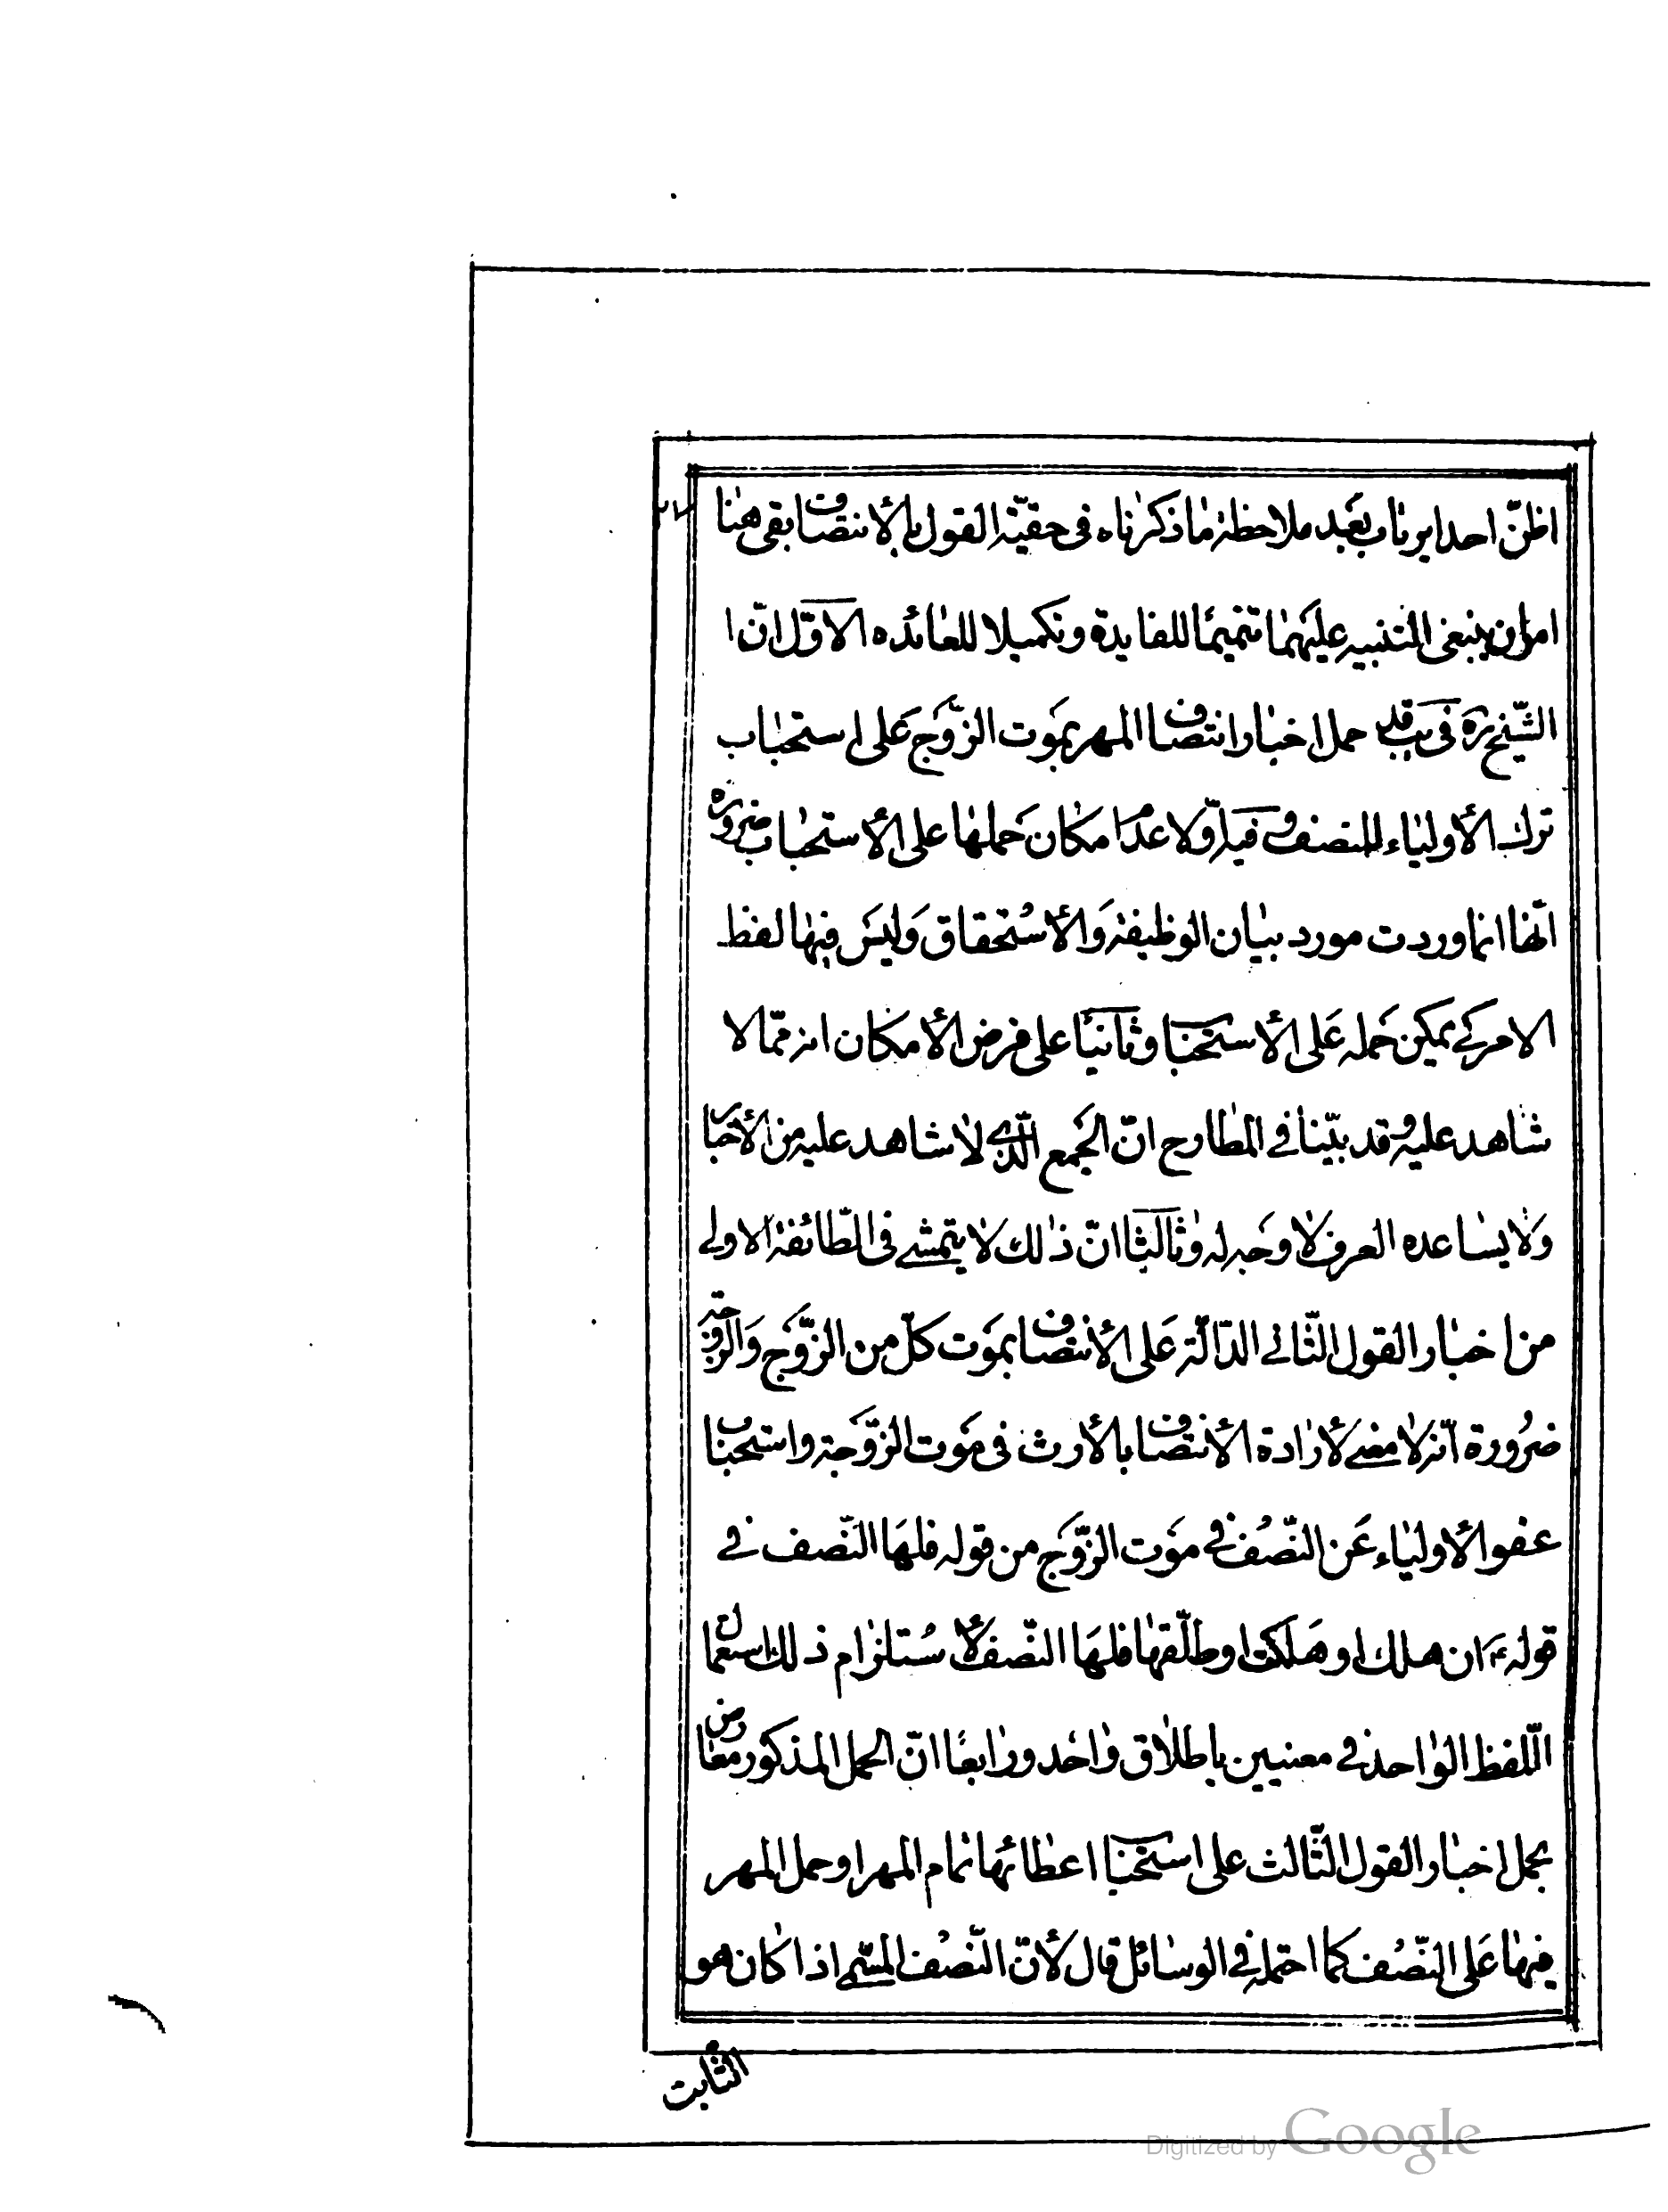 اظنّ احدا يرتاب بعد ملاحظة ما ذكرناه فى حقيّة القول بالأنتصاف بقى هنا
امران ينبغى التنبيه عليهما تتميمًا للفايدة و تكميلا للعائده الاوّل انّ ا
الشّيخ ره فى يب قد حمل اخبار انتصاف المهر بموت الزّوج على استحباب
ترك الأولياء للنصف و فيه اوّلا عدم امكان حملها على الأستحباب ضرورة
انّها انما وردت مورد بيان الوظيفة و الأستحقاق و ليس فيها لفظ
الامر كے يمكن حمله على الأستحباب و ثانيًا على فرض الأمكان انه ممّا لا
شاهد عليه و قد بيّنا فے المطارح انّ الجمع الّذى لا شاهد عليه من الأخبار
و لا يساعده العرف لا وجه له و ثالثا انّ ذلك لا يتمشے فى الطّائفة الاولے
من اخبار القول الثّانے الدّالّة على الأنتصاف بموت كلّ من الزّوج و الزّوجة
ضرورة انّه لا معنے لأرادة الأنتصاف بالأرث فى موت الزّوجة و استحباب
عفو الأولياء عن النّصف فے موت الزّوج من قوله فلها النّصف فے
قوله ع ان هلك او هلكت او طلّقها فلها النّصف لأستلزام ذلك استعمال
اللّفظ الواحد فے معنيين باطلاق واحد و رابعًا انّ الحمل المذكور معارض
بحمل اخبار القول الثّالث على استحباب اعطائها تمام المهر او حمل المهر
فيها على النّصف كما احتمله فے الوسائل قال لأنّ النّصف المسمّے اذا كان هو
الثّابت
Digitized by Google